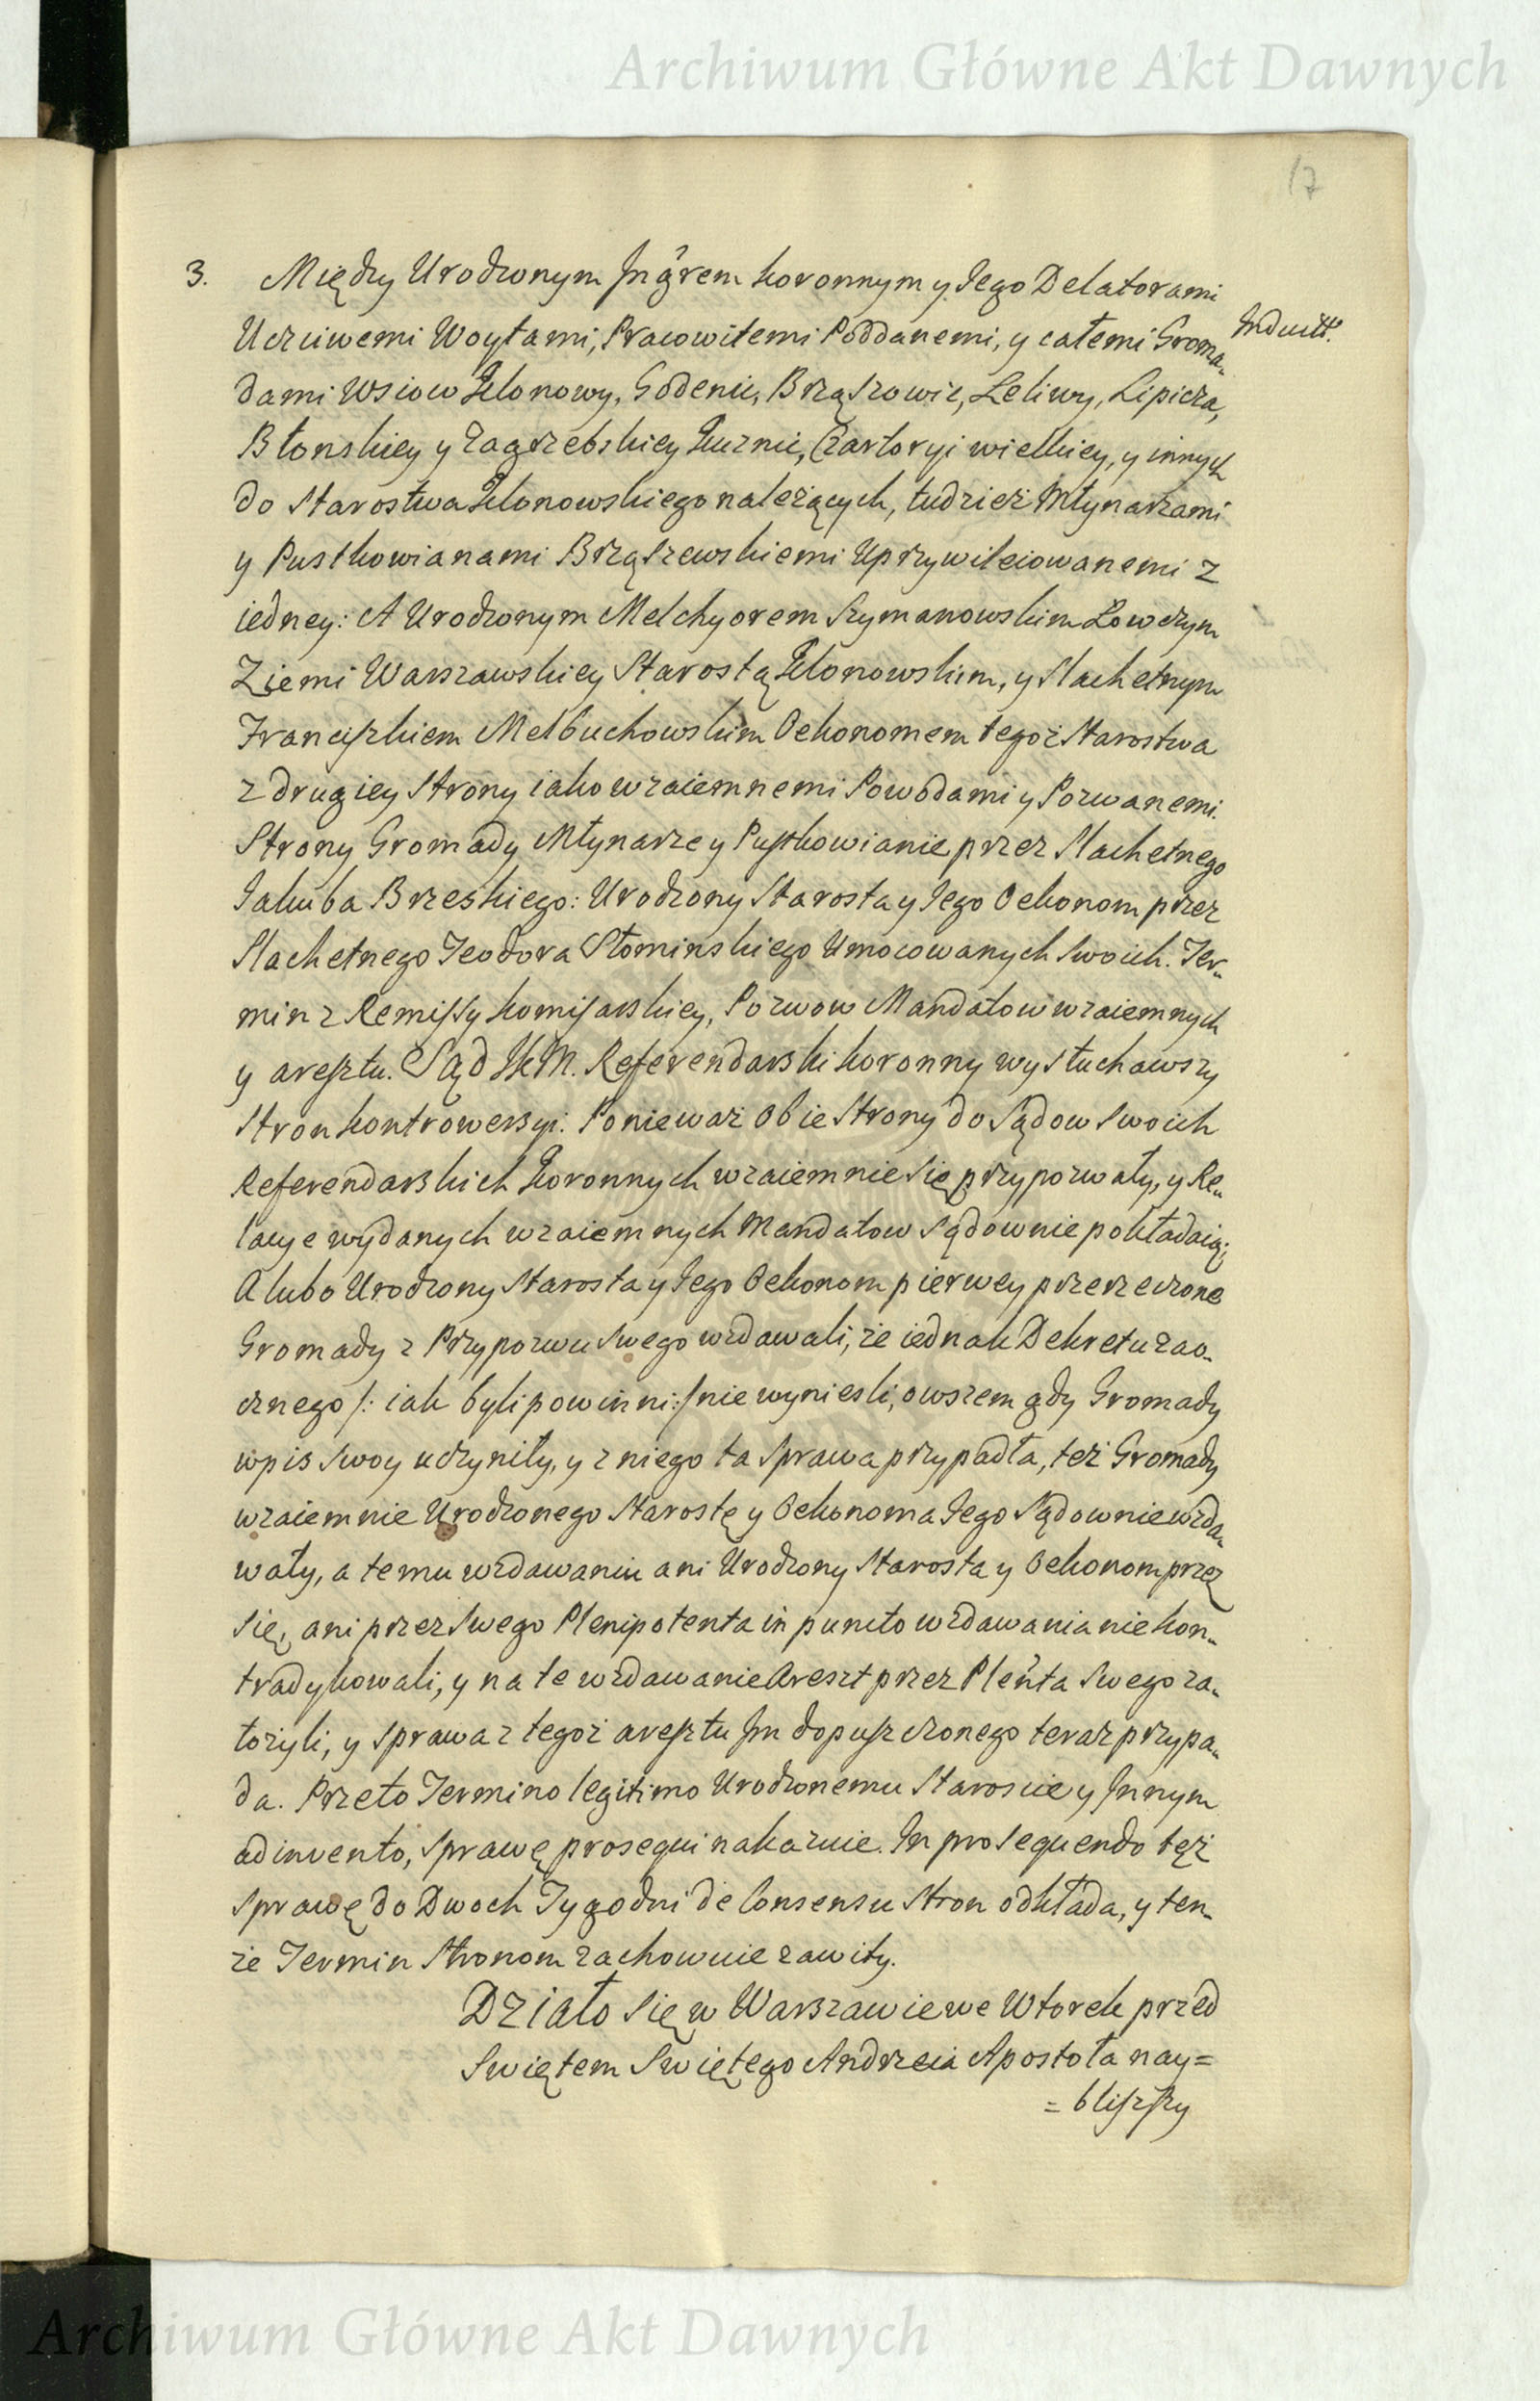 Archiwum Główne Akt Dawnych
17
3. Między Urodzonym Jngrem koronnym y Jego Delatorami
Uczciwemi Woytami, Pracowitemi Poddanemi, y całemi Groma-
Jnduitt.
dami Wsiow Klonowy, Godenic, Brząszowic, Leliwy, Lipicza,
Błonskiey y Zagrzebskiey Kuznic, Czartoryi wielkiey, y innych
do Starostwa Klonowskiego należących, tudzież Młynarzami
y Pustkowianami Brząszewskiemi Uprzywileiowanemi z
iedney: A Urodzonym Melchyorem Szymanowskim Łowczym
Ziemi Warszawskiey Starostą Klonowskim, y Slachetnym
Franciszkiem Melbuchowskim Oekonomem tegoż Starostwa
z drugiey Strony iako wzaiemnemi Powodami y Pozwanemi.
Strony Gromady Młynarze y Pustkowianie przez Slachetnego
Jakuba Brzeskiego: Urodzony Starosta y Jego Oekonom przez
Slachetnego Teodora Słominskiego Umocowanych Swoich. Ter-
min z Remissy komisarskiey, Pozwow Mandatow wzaiemnych
y aresztu. Sąd JKM. Referendarski koronny wysłuchawszy
Stron kontrowersyi: Ponieważ Obie Strony do Sądow Swoich
Referendarskich koronnych wzaiemnie się przypozwały, y Re-
lacye wydanych wzaiemnych Mandatow Sądownie pokładaią;
A lubo Urodzony Starosta y Jego Oekonom pierwey przerzeczone
Gromady z Przypozwu Swego wzdawali, że iednak Dekretu zao-
cznego /: iak byli powinni :/ nie wyniesli, owszem gdy Gromady
wpis swoy uczyniły, y z niego ta Sprawa przypadła, też Gromady
wzaiemnie Urodzonego Starostę y Oekonoma Jego Sądownie wzda-
wały, a temu wzdawaniu ani Urodzony Starosta y Oekonom przez
się, ani przez Swego Plenipotenta in puncto wzdawania nie kon-
tradykowali, y na te wzdawanie Areszt przez Plenta Swego za-
łożyli, y Sprawa z tegoż aresztu Jm dopuszczonego teraz przypa-
da. Przeto Termino legitimo Urodzonemu Staroscie y Jnnym
adinvento, Sprawę prosequi nakazuie. Jn prosequendo też
Sprawę do Dwoch Tygodni de Consensu Stron odkłada, y ten-
że Termin Stronom zachowuie zawity.
Działo się w Warszawie we Wtorek przed
Swiętem Swiętego Andrzeia Apostoła nay=
= bliszszy
Archiwum Główne Akt Dawnych